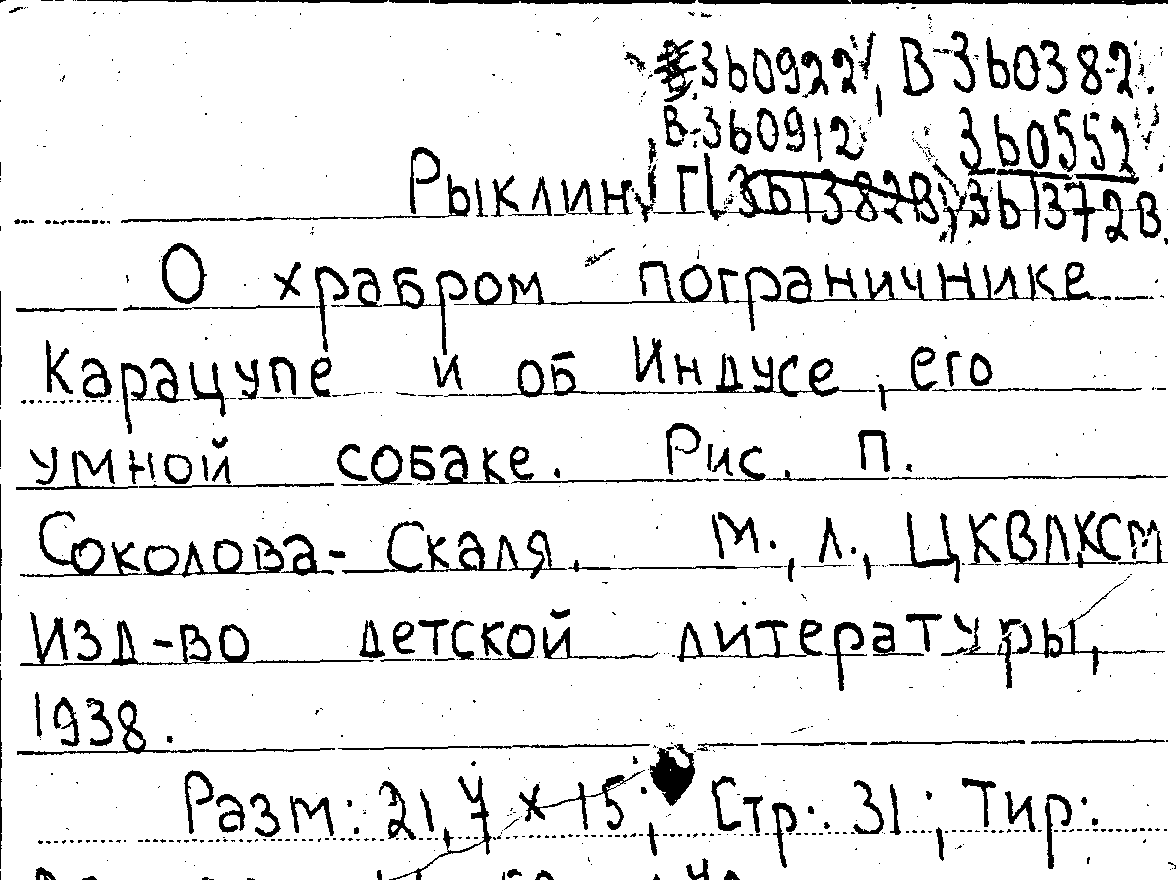 360922, В 360382.
В.360912 360552
Рыклин, Г. 361382В, 361372В.
О храбром пограничнике
Карацупе и об Индусе, его
умной собаке. Рис. П.
Соколова-Скаля. М., Л., ЦКВЛКСМ
Изд-во детской литературы,
1938.
Разм: 21,7 х 15; Стр: 31; Тир: